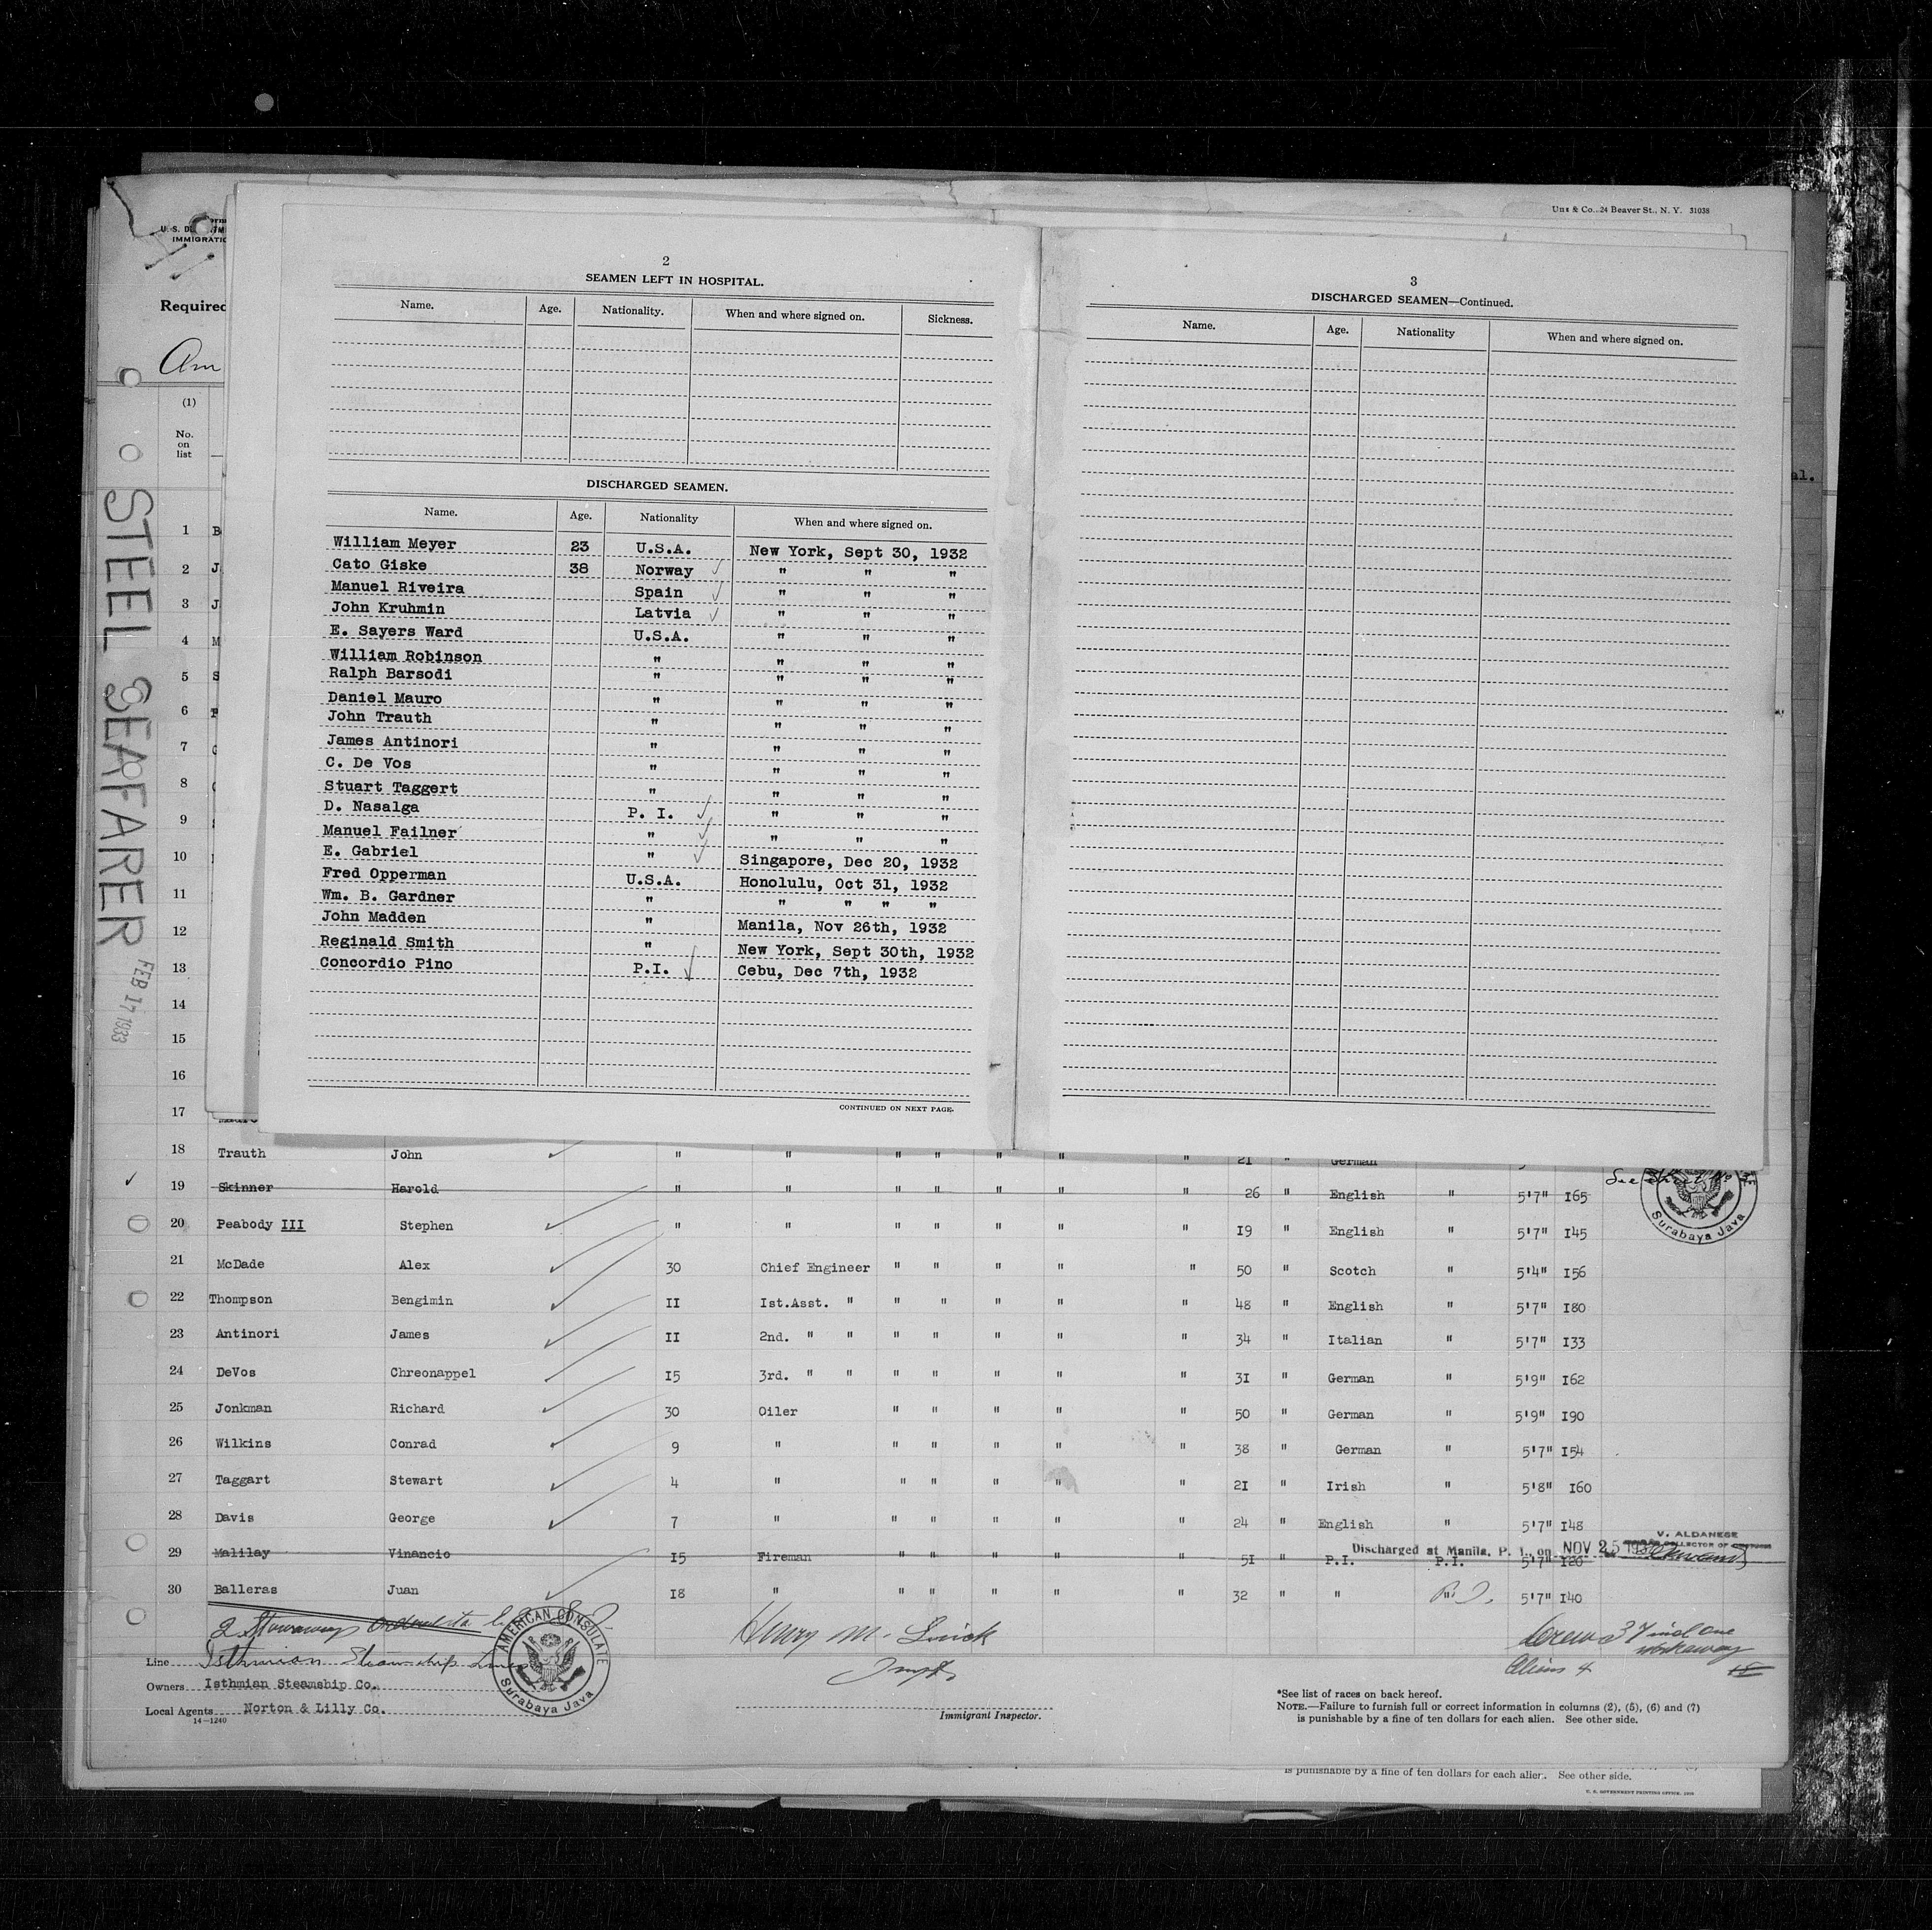 Uns & Co., 24 Beaver St., N. Y. 31038
U. S.
IMMIGRATIO
Required
Am
(1)
No. on list
STEEL SEAFARER
FEB 17 1933
al.
2
SEAMEN LEFT IN HOSPITAL.
Name. Age. Nationality. When and where signed on. Sickness.
DISCHARGED SEAMEN.
Name. Age. Nationality When and where signed on.
William Meyer 23 U.S.A. New York, Sept 30, 1932
Cato Giske 38 Norway " " "
Manuel Riveira Spain " " "
John Kruhmin Latvia " " "
E. Sayers Ward U.S.A. " " "
William Robinson " " " "
Ralph Barsodi " " " "
Daniel Mauro " " " "
John Trauth " " " "
James Antinori " " " "
C. De Vos " " " "
Stuart Taggert " " " "
D. Nasalga P. I. " " "
Manuel Failner " " " "
E. Gabriel " Singapore, Dec 20, 1932
Fred Opperman U.S.A. Honolulu, Oct 31, 1932
Wm. B. Gardner " " " " "
John Madden " Manila, Nov 26th, 1932
Reginald Smith " New York, Sept 30th, 1932
Concordio Pino P.I. Cebu, Dec 7th, 1932
CONTINUED ON NEXT PAGE.
3
DISCHARGED SEAMEN—Continued.
Name. Age. Nationality When and where signed on.
1 B
2 J
3 J
4 M
5 S
6
7
8
9
10
11
12
13
14
15
16
17
18 Trauth John " " " " " " " 21 " German
19 Skinner Harold " " " " " " " 26 " English " 5'7" 165
20 Peabody III Stephen " " " " " " " 19 " English " 5'7" 145
21 McDade Alex 30 Chief Engineer " " " " " 50 " Scotch " 5'4" 156
22 Thompson Bengimin II Ist.Asst. " " " " " " 48 " English " 5'7" 180
23 Antinori James II 2nd. " " " " " " " 34 " Italian " 5'7" 133
24 DeVos Chreonappel 15 3rd. " " " " " " " 31 " German " 5'9" 162
25 Jonkman Richard 30 Oiler " " " " " 50 " German " 5'9" 190
26 Wilkins Conrad 9 " " " " " " 38 " German " 5'7" 154
27 Taggart Stewart 4 " " " " " " 21 " Irish " 5'8" 160
28 Davis George 7 " " " " " " 24 " English " 5'7" 148
V. ALDANESE
COLLECTOR OF CUSTOMS
Discharged at Manila, P. I., on NOV 25 193
29 Malilay Vinancio 15 Fireman " " " " " 51 " P.I. P.I. 5'7" 126
30 Balleras Juan 18 " " " " " " 32 " " P.I. 5'7" 140
See
Surabaya Java
2 Stowaways
Henry M.
Crew 37 incl one workaway
Aliens 4
AMERICAN CONSULATE
Surabaya Java
Line Isthmian Steamship Lines
Owners Isthmian Steamship Co.
Local Agents Norton & Lilly Co.
14—1240
Immigrant Inspector.
*See list of races on back hereof.
NOTE.—Failure to furnish full or correct information in columns (2), (5), (6) and (7)
is punishable by a fine of ten dollars for each alien. See other side.
is punishable by a fine of ten dollars for each alien. See other side.
U. S. GOVERNMENT PRINTING OFFICE